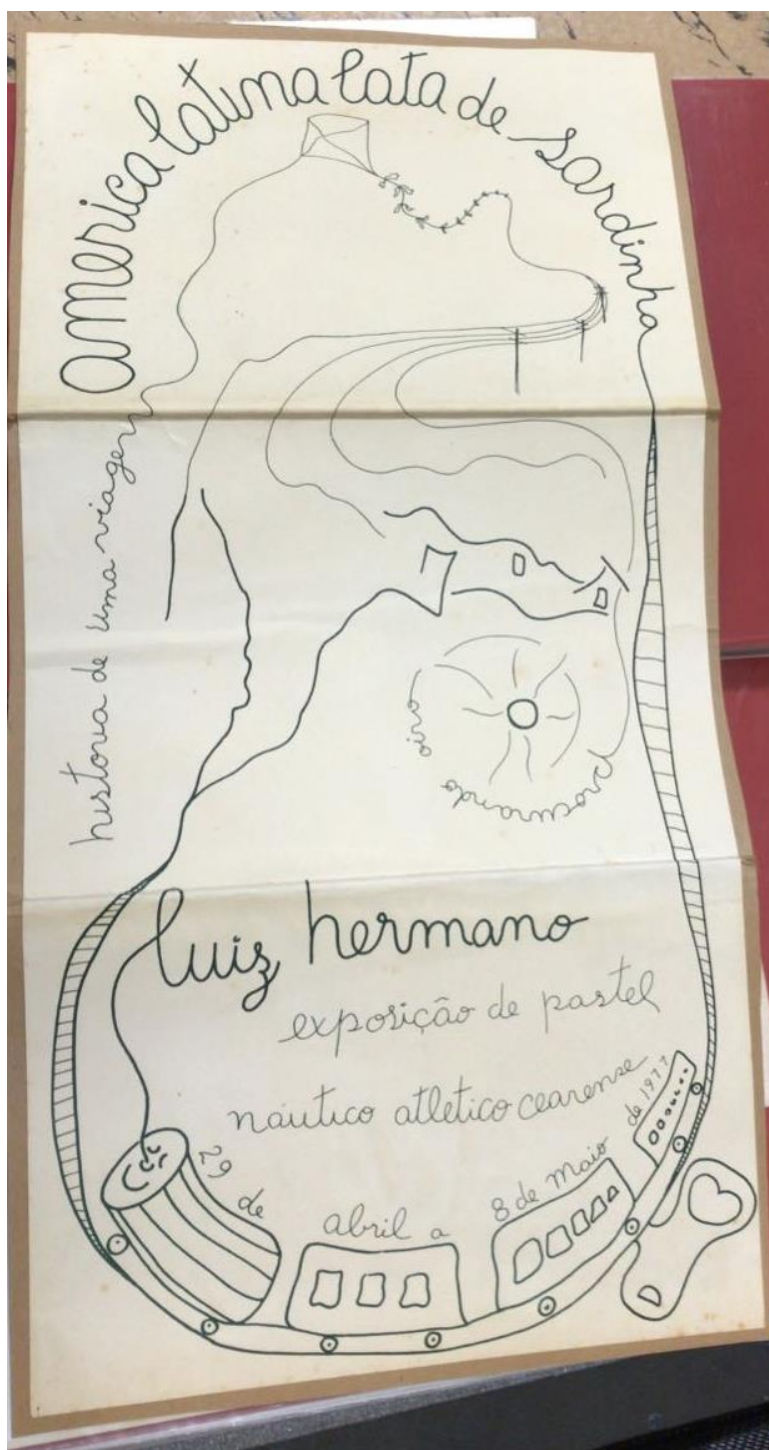 america latina lata de sardinha
historia de uma viagem
procurando
luiz hermano
exposição de pastel
náutico atletico cearense
29 de abril a 8 de maio de 1977